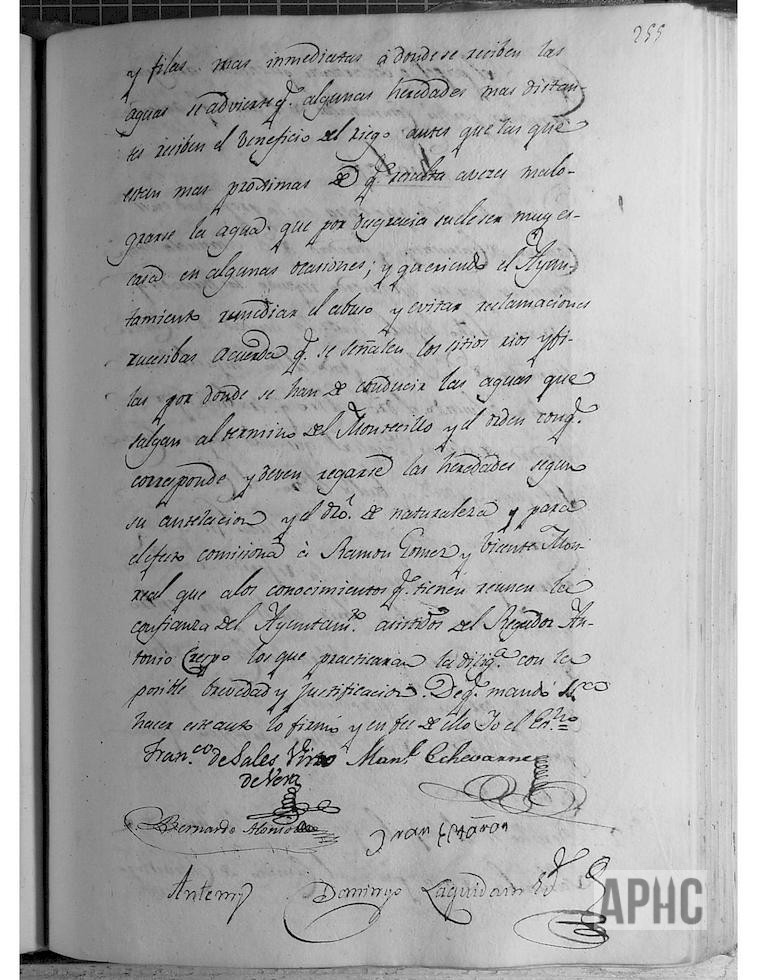 255
y filas mas inmediatas á donde se reciben las
aguas se advierte q.e algunas heredades mas distan-
tes reciben el beneficio del riego antes que las que
estan mas proximas de q.e resulta aveces malo-
grarse la agua que por desgracia suele ser muy es-
casa en algunas ocasiones; y queriendo el Ayun-
tamiento remediar el abuso y evitar reclamaciones
sucesibas acuerda q.e se señalen los sitios rios y fi-
las por donde se han de conducir las aguas que
salgan al termino del Montecillo y el orden con q.e
corresponde y deven regarse las heredades segun
su antelacion y el dro. de naturaleza y para
el efecto comisiona á Ramon Gomez y Vicente Mon-
real que alos conocimientos q.e tienen reunen la
confianza del Ayuntam.to asistidos del Regidor An-
tonio Crespo los que practicaran la dilig.a con la
posible brevedad y justificacion. De q.e mandó
hacer este auto lo firmó y en fee de ello Yo el Es.no
Fran.co de Sales Man.l Echevarne
de Vera
Bernardo Alonso
Juan
Antemi Domingo Laguidain
APHC